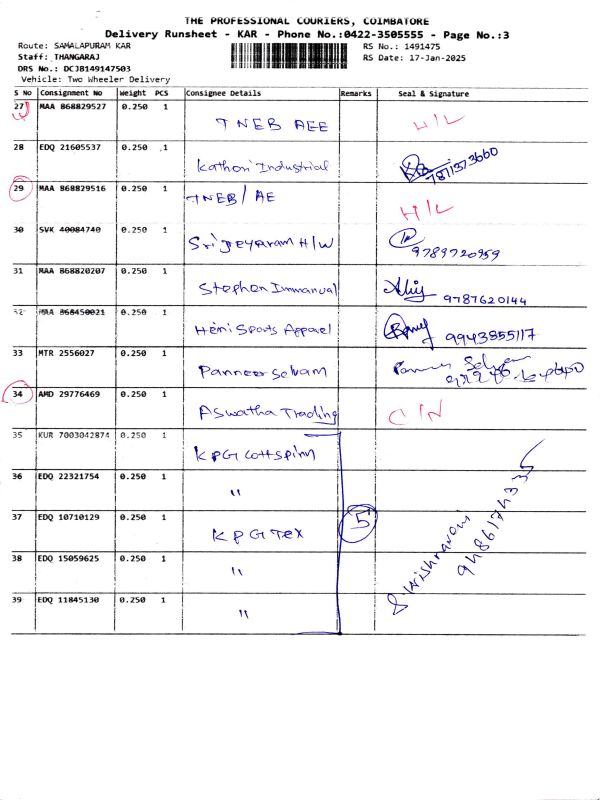 THE PROFESSIONAL COURIERS, COIMBATORE
Delivery Runsheet - KAR - Phone No.:0422-3505555 - Page No.:3
Route: SAMALAPURAM KAR RS No.: 1491475
Staff: THANGARAJ RS Date: 17-Jan-2025
DRS No.: DCJ8149147503
Vehicle: Two Wheeler Delivery
S No Consignment No Weight PCS Consignee Details Remarks Seal & Signature
27 MAA 868829527 0.250 1 TNEB AEE H/L
28 EDQ 21605537 0.250 1 Kathori Industrial 7871373660
29 MAA 868829516 0.250 1 TNEB/AE H/L
30 SVK 40084740 0.250 1 Sri Jeyaram H/W 9789720959
31 MAA 868820207 0.250 1 Stephen Immanual 9787620144
32 MAA 868450021 0.250 1 Hemi Sports Apparel 9943855117
33 MTR 2556027 0.250 1 Panneer Selvam
34 AMD 29776469 0.250 1 Aswatha Trading C/N
35 KUR 7003042874 0.250 1 KPG Cottspinn
36 EDQ 22321754 0.250 1 "
37 EDQ 10710129 0.250 1 KPG Tex 5
38 EDQ 15059625 0.250 1 "
39 EDQ 11845130 0.250 1 "